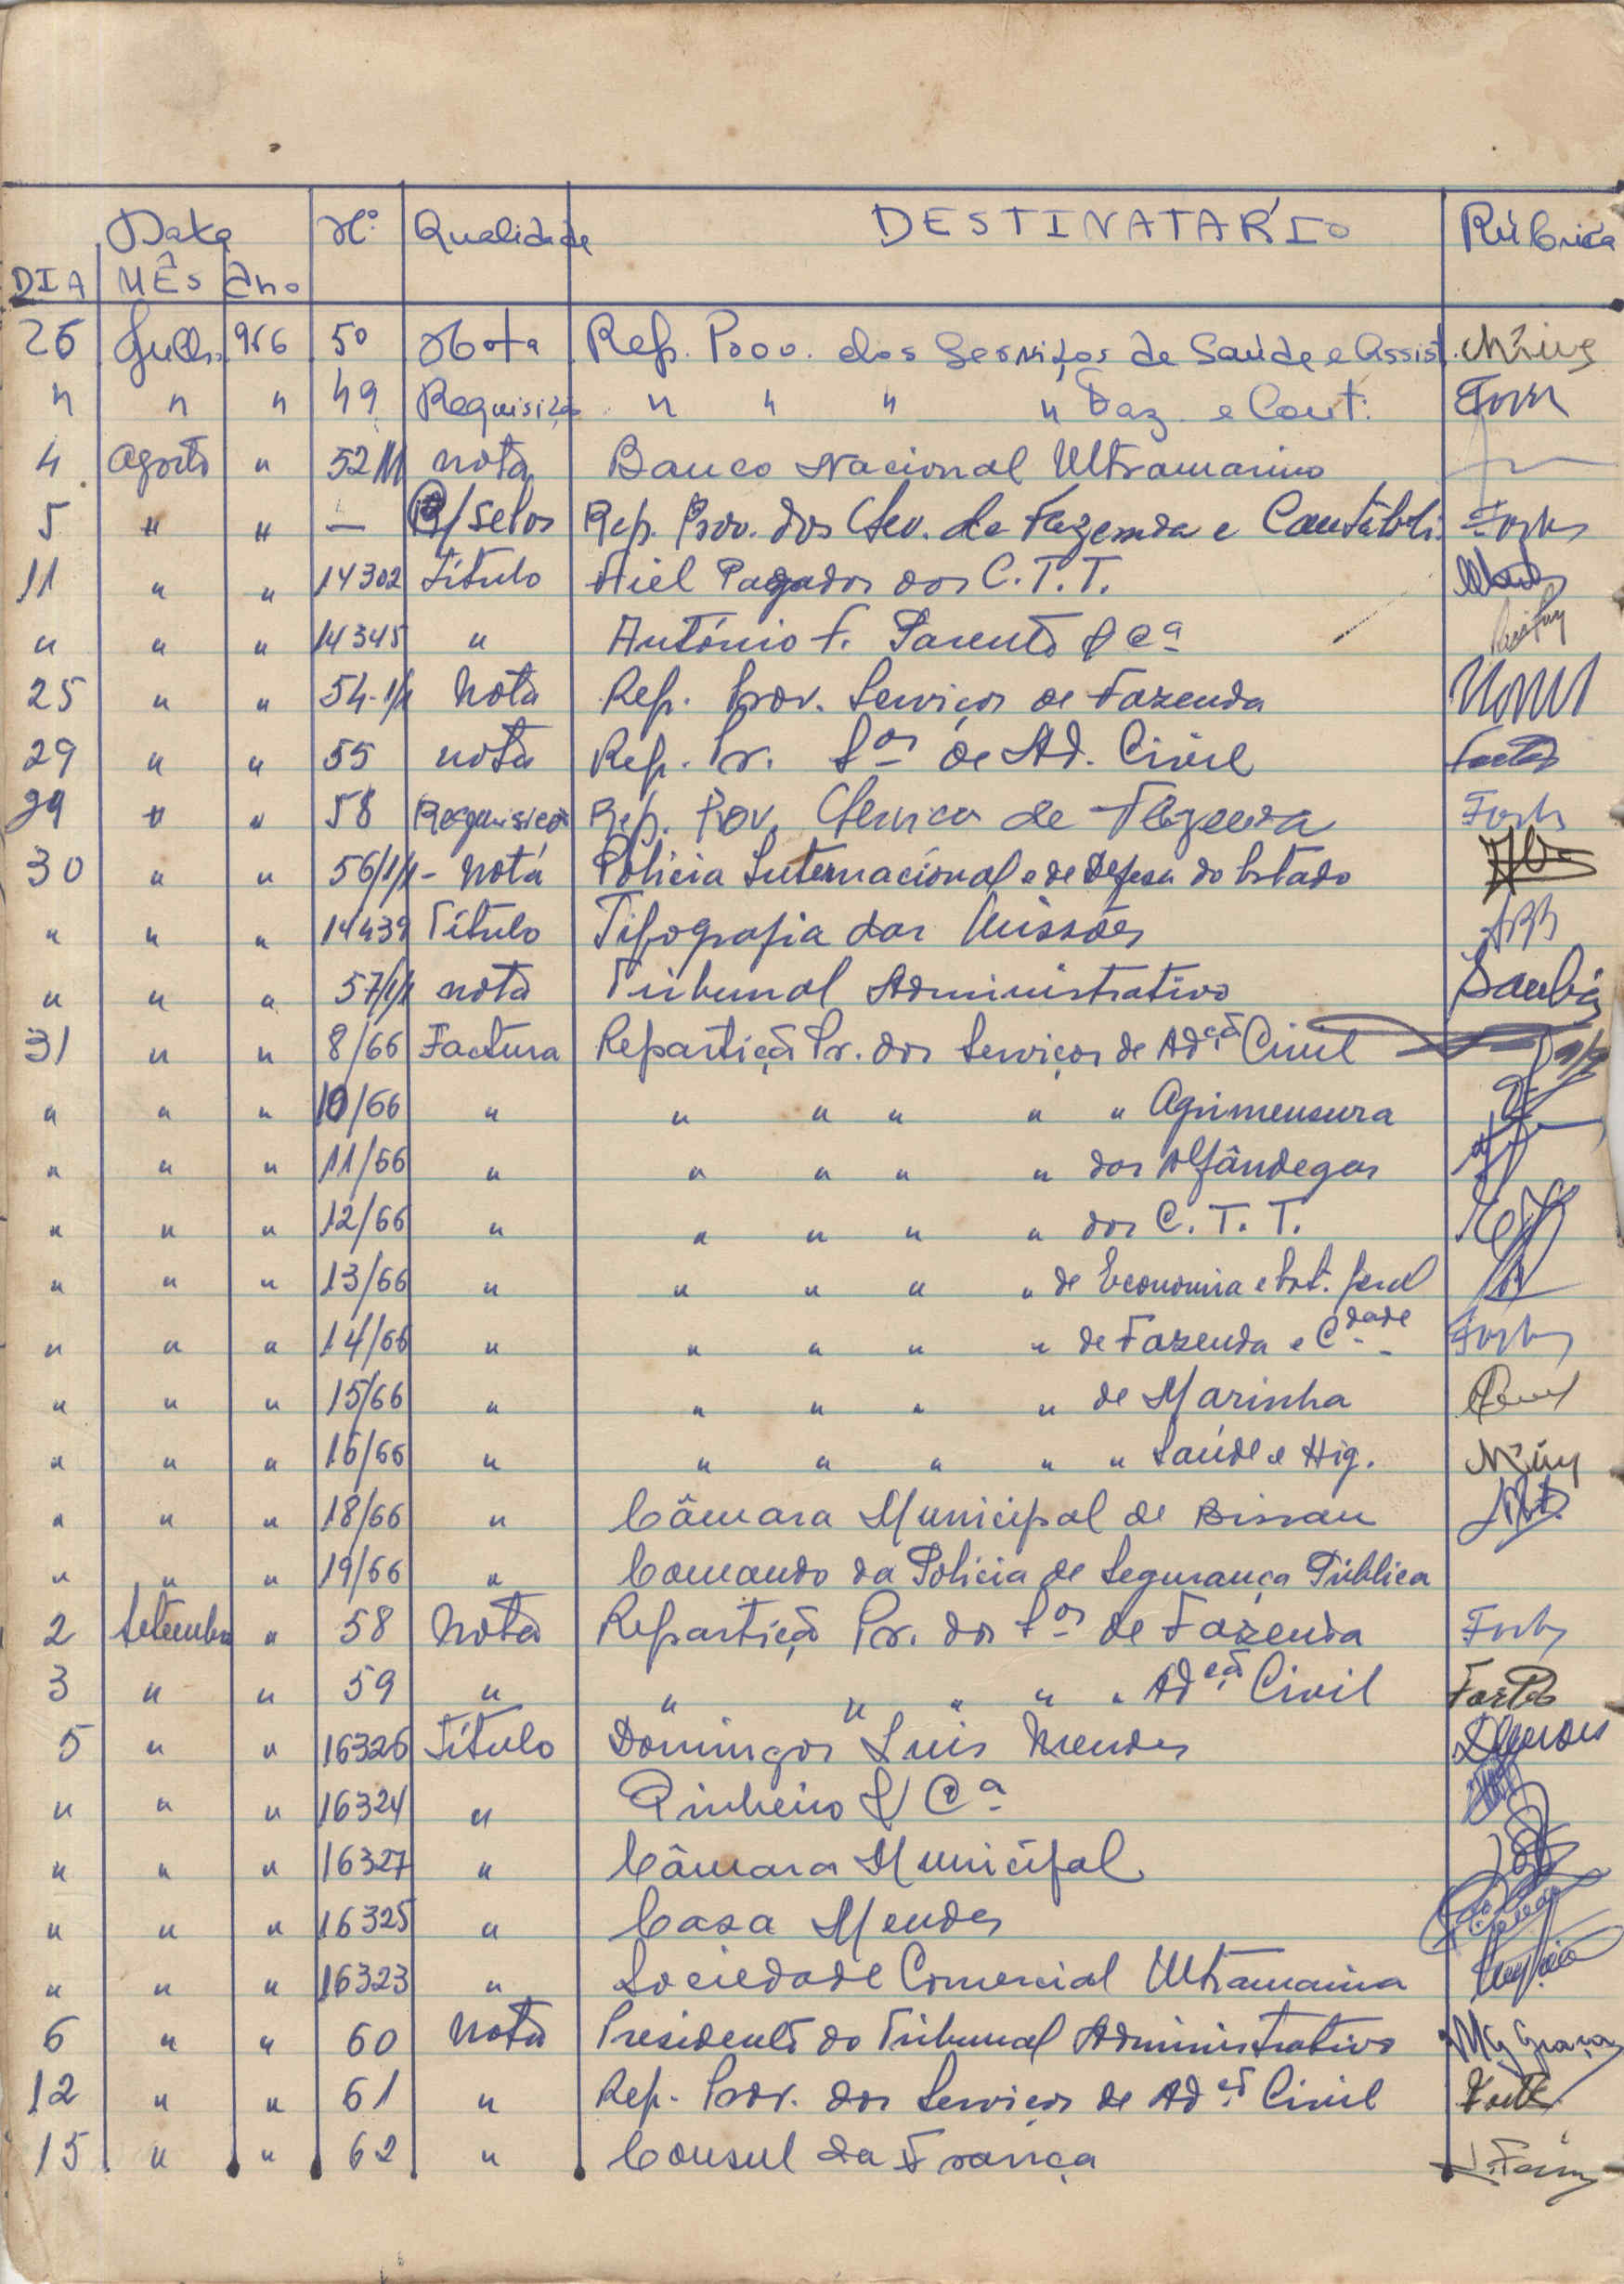 Data Nº Qualidade DESTINATARÍO Rúbrica
DIA MÊS Ano
26 Julho 966 50 Nota Rep. Prov. dos Serviços de Saúde e Assist.
" " " 49 Requisição " " " " Faz. e Cont.
4 Agosto " 52 nota Banco Nacional Ultramarino
5 " " — /selos Rep. Prov. dos Sev. de Fazenda e Contabili. Fortes
11 " " 14302 Título Fiel Pagador dos C.T.T.
" " " 14345 " António F. Parente & Cª
25 " " 54-1/1 Nota Rep. Prov. Serviços de Fazenda
29 " " 55 nota Rep. Pr. Sos de Ad. Civil Fortes
29 " " 58 Requisição Rep. Prov. Servicos de Fazenda Fortes
30 " " 56/1/1 - Nota Polícia Internacional e de Defesa do Estado
" " " 14439 Título Tipografia das Missões
" " " 57/1/1 nota Tribunal Administrativo
31 " " 8/66 Factura Repartição Pr. dos Serviços de Adção Civil
" " " 10/66 " " " " " " Agrimensura
" " " 11/66 " " " " " dos Alfândegas
" " " 12/66 " " " " " dos C. T. T.
" " " 13/66 " " " " " de Economia e Est. Geral
" " " 14/66 " " " " " de Fazenda e Cdade Fortes
" " " 15/66 " " " " " de Marinha
" " " 16/66 " " " " " " Saúde e Hig.
" " " 18/66 " Câmara Municipal de Bissau
" " " 19/66 " Comando da Polícia de Segurança Pública
2 Setembro " 58 Nota Repartição Pr. dos Sos de Fazenda Fortes
3 " " 59 " " " " " " Adção Civil Fortes
5 " " 16326 Título Domingos Luis Mendes
" " " 16324 " Pinheiro & Cª
" " " 16327 " Câmara Municipal
" " " 16325 " Casa Mendes
" " " 16323 " Sociedade Comercial Ultramarina
6 " " 60 Nota Presidente do Tribunal Administrativo
12 " " 61 " Rep. Prov. dos Serviços de Adção Civil
15 " " 62 " Consul da França